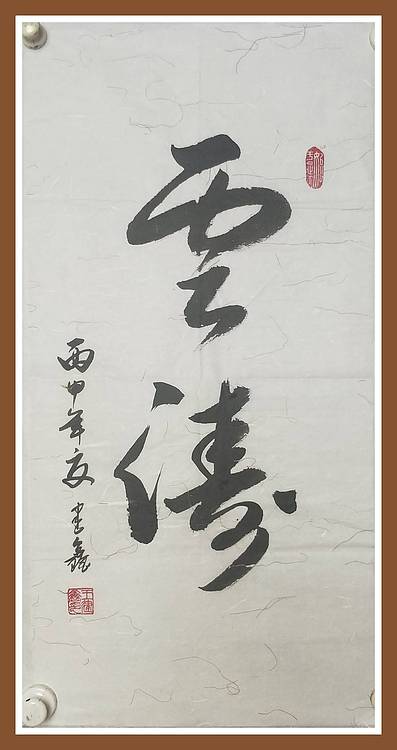 雲濤
丙申年夏 書鑫